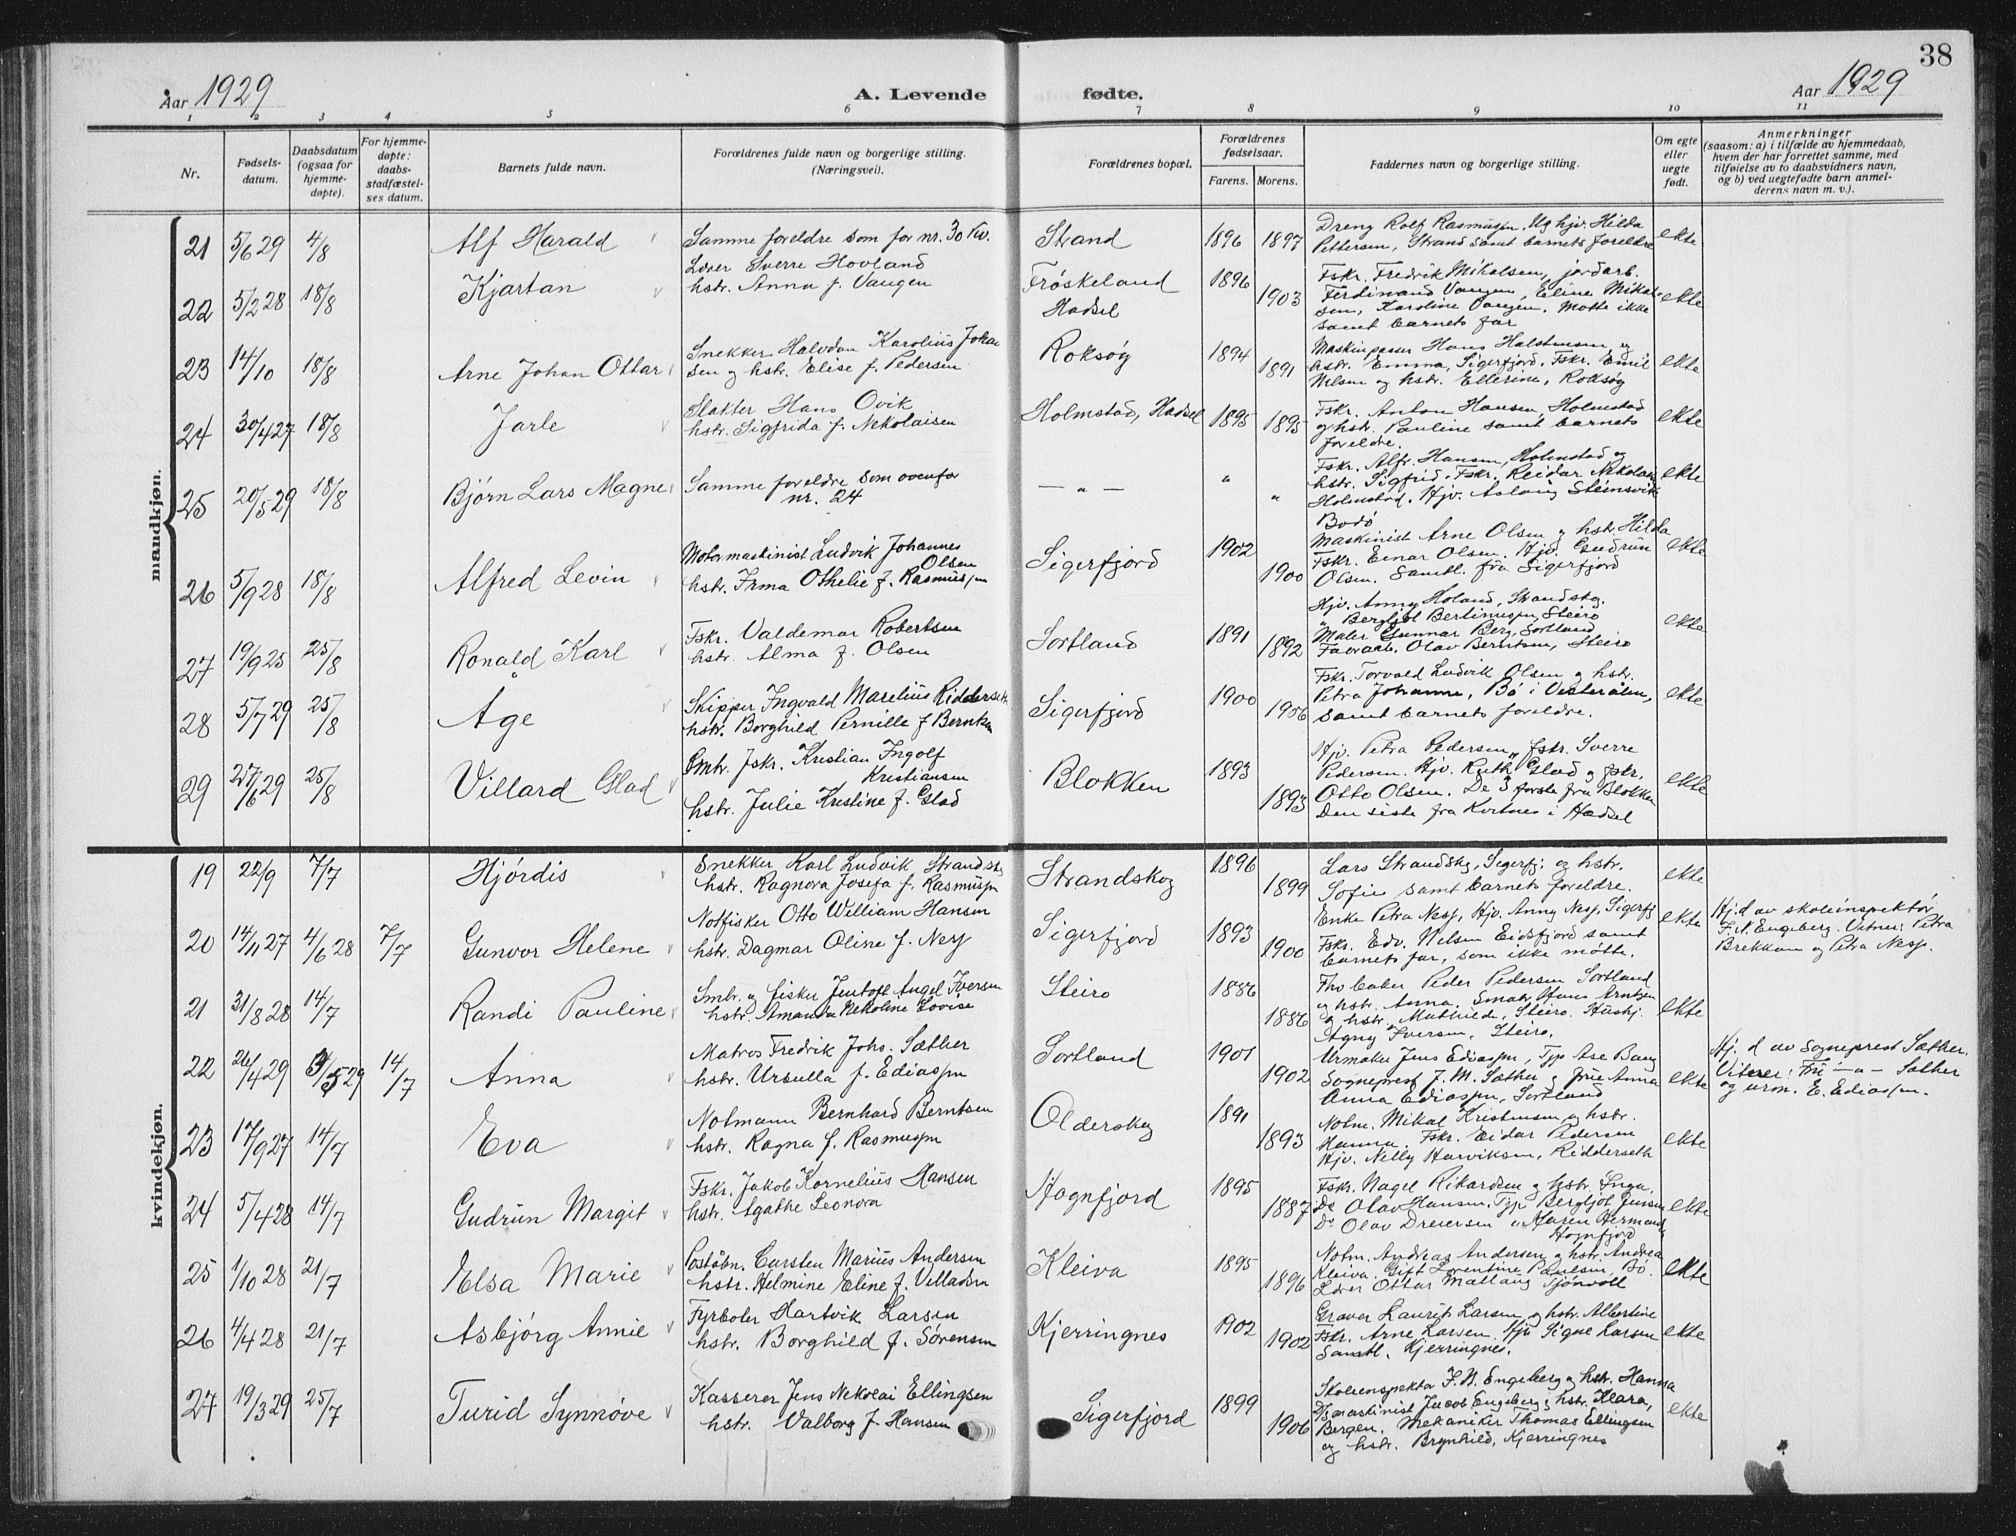 38
Aar 1929
A. Levende fødte.
Aar 1929
1 2 3 4 5 6 7 8 9 10 11
Nr.
Fødsels-
datum.
Daabsdatum
(ogsaa for
hjemme-
døpte).
For hjemme-
døpte:
daabs-
stadfæstel-
ses datum.
Barnets fulde navn.
Forældrenes fulde navn og borgerlige stilling.
(Næringsvei).
Forældrenes bopæl.
Forældrenes
fødselsaar.
Farens. Morens.
Faddernes navn og borgerlige stilling.
Om egte
eller
uegte
født.
Anmerkninger
(saasom: a) i tilfælde av hjemmedaab,
hvem der har forrettet samme, med
tilføielse av to daabsvidners navn,
og b) ved uegtefødte barn anmel-
derens navn m. v.).
mandkjøn.
21 5/6 29 4/8 Alf Harald
Samme foreldre som for nr. 30 Kv.
Strand 1896 1897
Dreng Rolf Rasmussn, Ug hjv. Hilda
Pettersen, Strand samt barnets foreldre
ekte
22 5/2 28 18/8 Kjartan
Lærer Sverre Hovland
hstr. Anna f. Vangen
Frøskeland
Hadsel
1896 1903
Fskr. Fredrik Mikalsen, jordarb.
Ferdinand Vangen, Eline Mikal-
sen, Karoline Vangen. Møtte ikke
samt barnets far
ekte
23 14/10 18/8 Arne Johan Ottar
Snekker Halvdan Karolius Johan
sen og hstr. Elise f. Pedersen
Roksøy 1894 1891
Maskinpasser Hans Halstensen og
hstr. Emma, Sigerfjord. Fskr. Emil
Nilsen og hstr. Ellerine, Roksøy
ekte
24 30/4 27 18/8 Jarle
Slakter Hans Ovik
hstr. Sigfrida f. Nikolaisen
Holmstad, Hadsel 1895 1895
Fskr. Anton Hansen, Holmstad
og hstr. Pauline samt barnets
foreldre.
ekte
25 20/5 29 18/8 Bjørn Lars Magne
Samme foreldre som ovenfor
nr. 24
— " — " "
Fskr. Alfr. Hansen, Holmstad og
hstr. Sigfrid. Fskr. Reidar Nikolais
Holmstad. Hjv. Aslaug Steinsvik
Bodø
ekte
26 5/9 28 18/8 Alfred Levin
Motormaskinist Ludvik Johannes
Olsen
hstr. Irma Othelie f. Rasmussn
Sigerfjord 1902 1900
Maskinist Arne Olsen og hstr. Hilda
Fskr. Einar Olsen. Hjv. Gudrun
Olsen. Samtl. fra Sigerfjord
ekte
27 19/9 25 25/8 Ronald Karl
Fskr. Valdemar Robertsen
hstr. Alma f. Olsen
Sortland 1891 1892
Hjv. Anny Holand, Strandskg.
" Bergljot Bertinussn, Steiro
Maler Gunnar Berg, Sortland
Olav Berntsen, Steiro
ekte
28 5/7 29 25/8 Åge
Skipper Ingvald Marelius Ridderseth
hstr. Borghild Pernille f Berntsen
Sigerfjord 1900 1906
Fskr. Torvald Ludvik Olsen og hstr.
Petra Johanne, Bø i Vesterålen,
samt barnets foreldre.
ekte
29 27/6 29 25/8 Villard Glad
Smbr. fskr. Kristian Ingolf
Kristiansen
hstr. Julie Kristine f. Glad
Blokken 1893 1893
Hjv. Petra Pedersen, fskr. Sverre
Pedersen. Hjv. Ruth Glad og fskr.
Otto Olsen. De 3 første fra Blokken
Den siste fra Kvitnes i Hadsel
ekte
kvindekjøn.
19 22/9 7/7 Hjørdis
Snekker Karl Ludvik Strandskg
hstr. Ragnora Josefa f. Rasmussn
Strandskog 1896 1899
Lars Strandskg, Sigerfj. og hstr.
Sofie samt barnets foreldre.
ekte
20 14/11 27 4/6 28 7/7 Gunvor Helene
Notfisker Otto William Hansen
hstr. Dagmar Oline f. Ness
Sigerfjord 1893 1900
Enke Petra Ness, Hjv. Anny Ness, Sigerfj
Fskr. Edv. Nilsen Eidsfjord samt
barnets far, som ikke møtte.
ekte
Hj.d av skoleinspektør
F. N. Engeberg. Vitner: Petra
Brekkan og Petra Ness.
21 31/8 28 14/7 Randi Pauline
Smbr. og fisker Jentoft Angel Iversen
hstr. Amanda Nikoline Lovise
Steiro 1886 1886
Peder Pedersen Sortland
og hstr. Anna. Smbr. Hans Arntzen
og hstr. Mathilde, Steiro. Hushj.
Agny Iversen, Steiro.
ekte
22 26/4 29 9/5 29 14/7 Anna
Matros Fredrik Johs. Sæther
hstr. Ursulla f. Ediassn
Sortland 1901 1902
Urmaker Jens Ediassn, Typ Åse Bang
Sogneprest J. M. Sæther og frue Anna
Anna Ediassn, Sortland
ekte
Hj. d av sogneprest Sæther.
Vitner: Fru —"— Sæther
og urm. E. Ediassn.
23 17/9 27 14/7 Eva
Notmann Bernhard Berntsen
hstr. Ragna f. Rasmussn
Olderskog 1891 1893
Notm. Mikal Kristensen og hstr.
Hanna. Fskr. Eidar Pedersen
Hjv. Nelly Harviksen, Ridderseth
ekte
24 5/4 28 14/7 Gudrun Margit
Fskr. Jakob Kornelius Hansen
hstr. Agathe Leonora
Hognfjord 1895 1887
Fskr. Nagel Rikardsen og hstr. Inga.
Do Olav Hansen. Typ Bergljot Jensen
Do Olav Dreiersen " Maren Hermands
Hognfjord
ekte
25 1/10 28 21/7 Elsa Marie
Postøbn. Carsten Marius Andersen
hstr. Helmine Eline f. Villadsen
Kleiva 1895 1896
Notm. Andreas Andersen og hstr. Andrea
Kleiva. Gift Lorentine Paulsen, Bø.
Lærer Ottar Mælland Tjønvoll
ekte
26 4/4 28 21/7 Asbjørg Annie
Fyrbøter Hartvik Larsen
hstr. Borghild f. Sørensen
Kjerringnes 1902 1902
Graver Laurits Larsen og hstr. Albertine
Fskr. Arne Larsen. Hjv Signe Larsen
Samtl. Kjerringnes.
ekte
27 19/3 29 25/7 Turid Synnøve
Kasserer Jens Nikolai Ellingsen
hstr. Valborg f. Hansen
Sigerfjord 1899 1906
Skoleinspektør F. N. Engeberg og hstr. Hanna
maskinist Jacob Engeberg og hstr. Klara,
Bergen. Mekaniker Thomas Ellingsen
og hstr. Brynhild, Kjerringnes
ekte